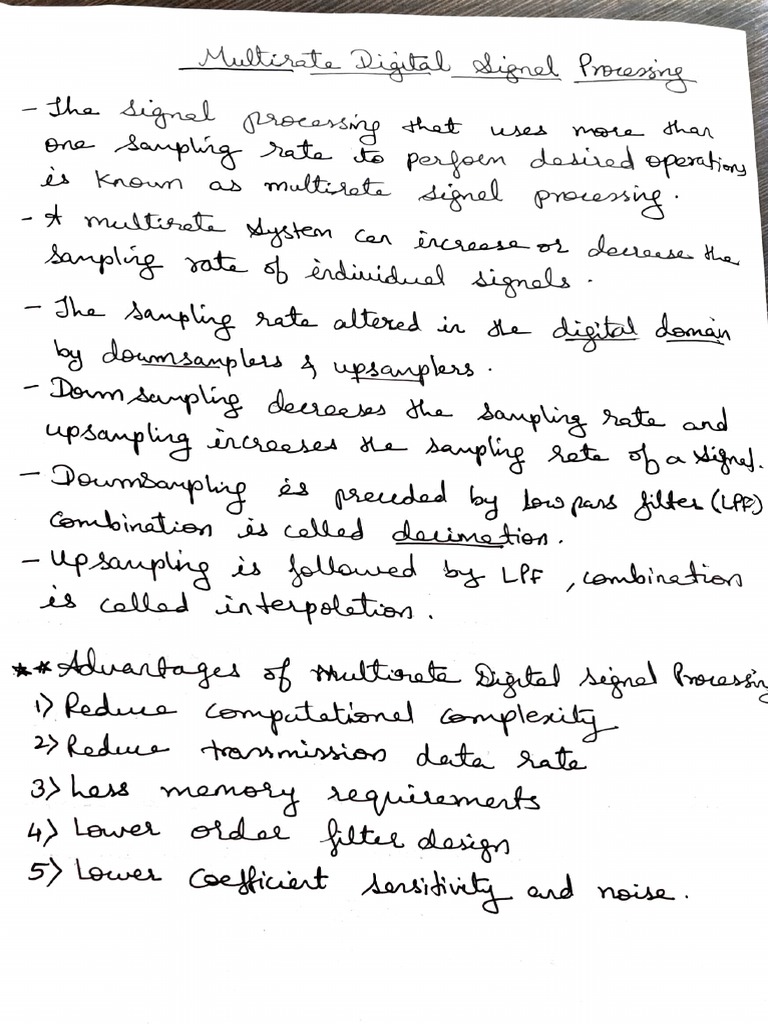 Multirate Digital Signal Processing
- The signal processing that uses more than
one sampling rate to perform desired operations
is known as multirate signal processing.
- A multirate system can increase or decrease the
sampling rate of individual signals.
- The sampling rate altered in the digital domain
by downsamplers & upsamplers.
- Down sampling decreases the sampling rate and
upsampling increases the sampling rate of a signal.
- Downsampling is preceded by low pass filter (LPF)
combination is called decimation.
- Upsampling is followed by LPF, combination
is called interpolation.
** Advantages of Multirate Digital Signal Processing
1) Reduce computational complexity
2) Reduce transmission data rate
3) Less memory requirements
4) Lower order filter design
5) Lower coefficient sensitivity and noise.